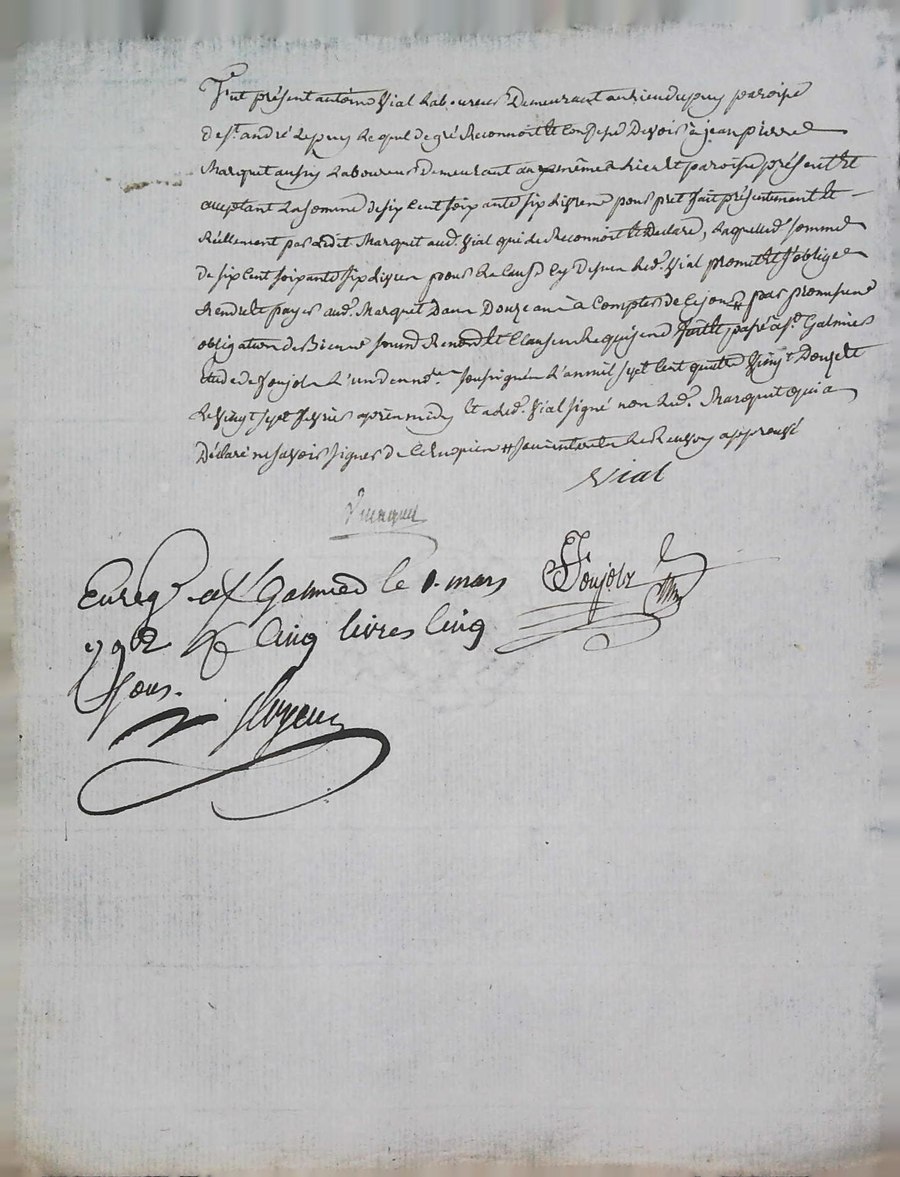 Fut présent antoine Vial Laboureur Demeurant au lieu du puy paroise
de st. andré le puy Lequel de gré Reconnoit et Confese Devoir à jean pierre
Marquet aussy Laboureur demeurant au même Lieu et paroise présent et
acceptant La somme de six Cent soixante six Livres pour pret fait présentement et
Réellement par Ledit Marquet aud. Vial qui le Reconnoit et Declare, Laquelle somme
de six Cent soixante six Livres pour La Cause cy desus Led. Vial promet et s'oblige
Rendre et payer aud. Marquet Dans Douze à Compter de Ce jour # par promesse
obligation de Biens soumis Renond et Clauses Requises fait et pasé à st. Galmier
étude de Poujol L'un des nores. sousignés L'an mil sept Cent quatre Vingt Douze et
Le Vingt sept Fevrier après midy et a Led. Vial signé non Led. Marquet qui a
Déclaré ne savoir signer de Ce Requis # Le Renvoy approuvé
Vial
Enregr. à st Galmier le mars
1792 R cinq livres cinq
sous.
Poujol